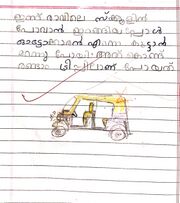 ഇന്ന് രാവിലെ സ്കൂളിൽ
പോവാൻ ഇറങ്ങിയപ്പോൾ
ഓട്ടോറോരൻ എന്നെ കൂട്ടാൻ
മറന്നു പോയി. അത് കൊണ്ട്
രണ്ടാം ട്രിപ്പിലാണ് പോയത്